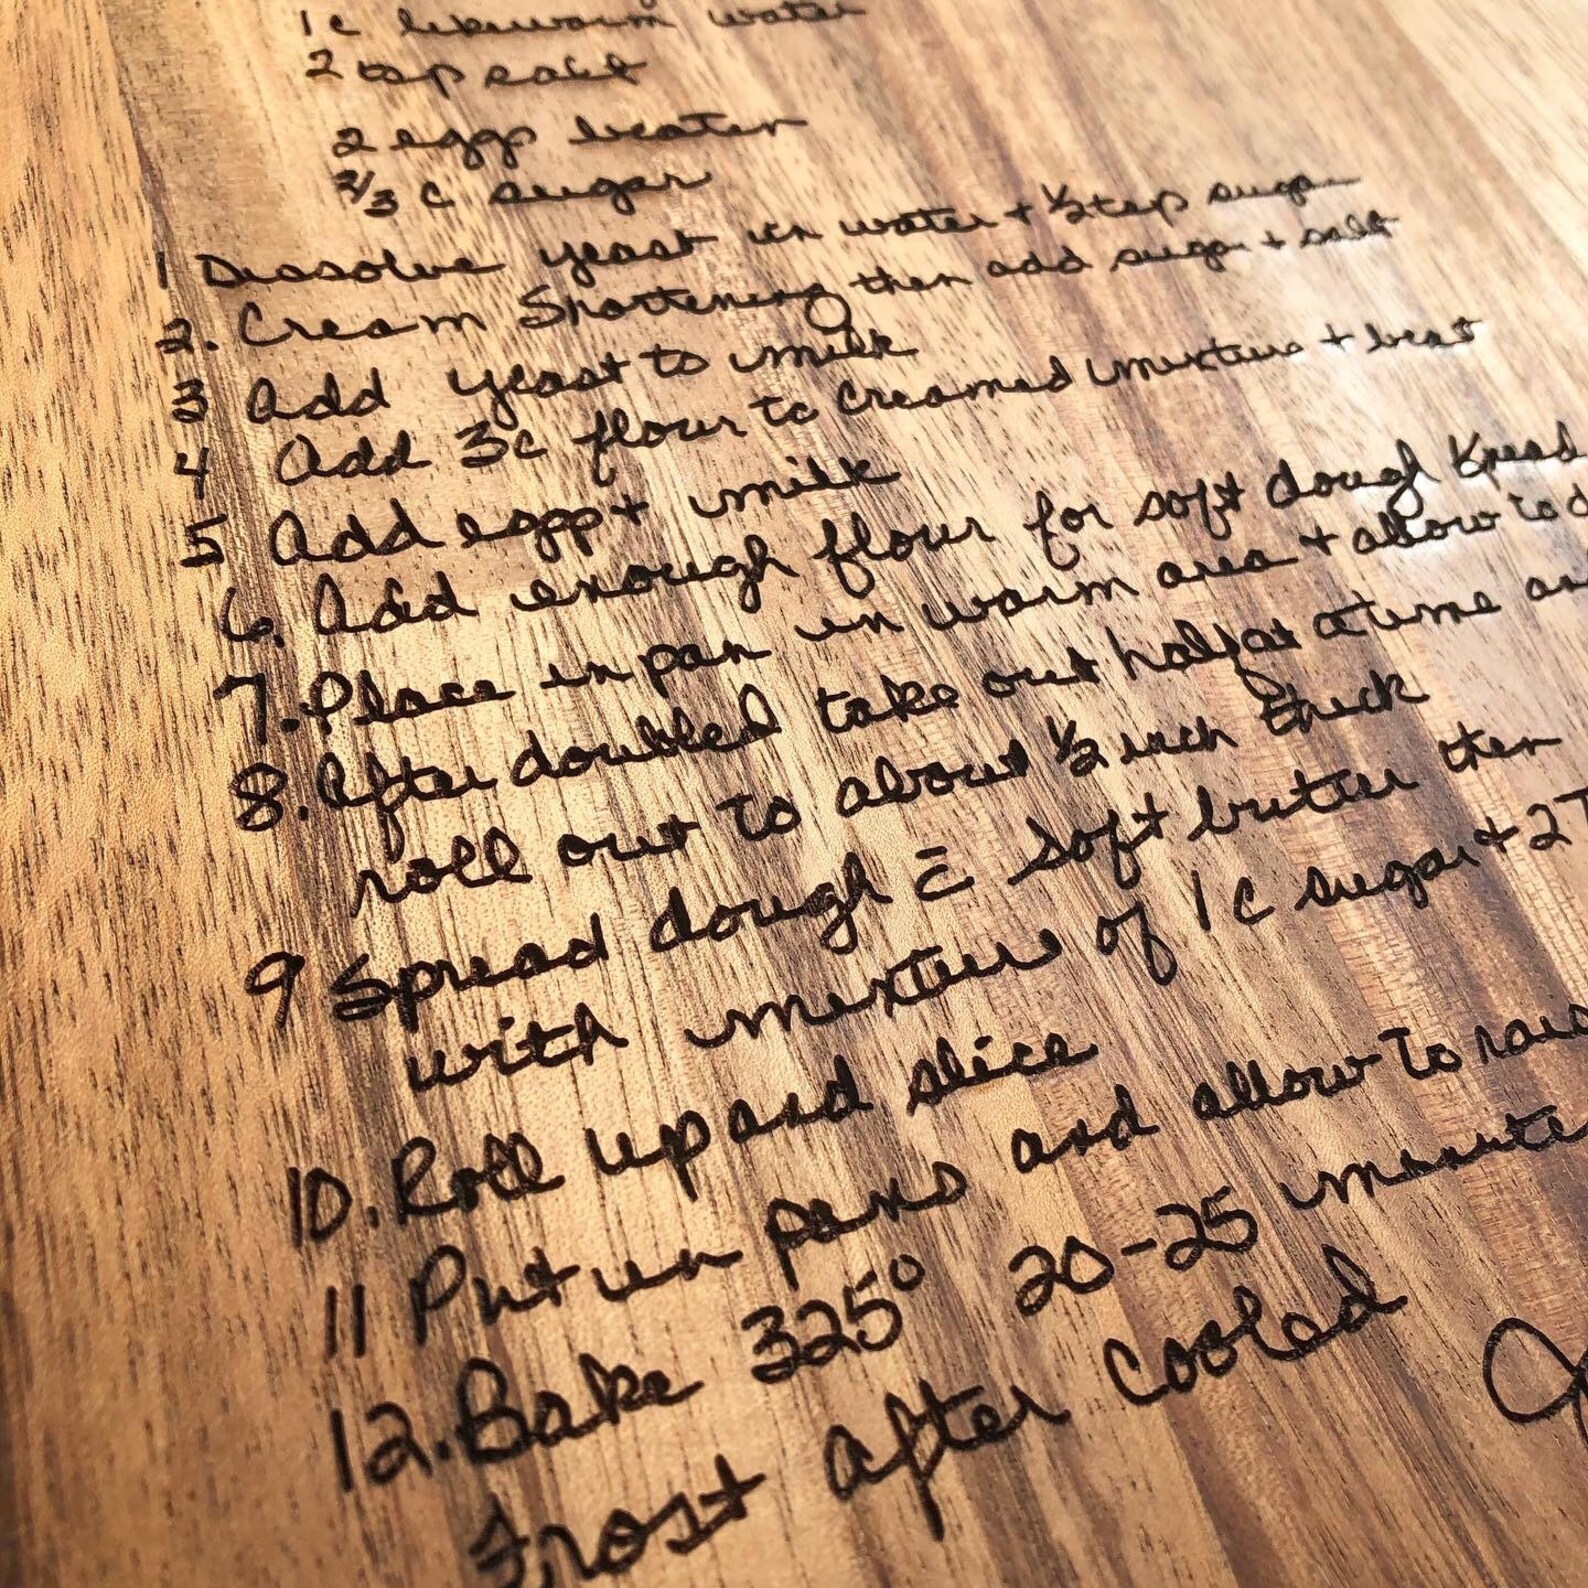 1 c lukewarm water
2 tsp salt
2 eggs beaten
2/3 c sugar
1 Dissolve yeast in water + 1/2 tsp sugar
2. Cream Shortening then add sugar + salt
3 Add yeast to milk
4 Add 3c flour to creamed mixture + beat
5 Add eggs + milk
6. Add enough flour for soft dough Knead
7. Place in pan in warm area + allow to d
8. After doubled take out half at a time an
roll out to about 1/2 inch thick
9 Spread dough c̄ soft butter then
with mixture of 1 c sugar + 2 T
10. Roll up and slice
11 Put in pans and allow to rais
12. Bake 325° 20-25 minutes
Frost after cooled